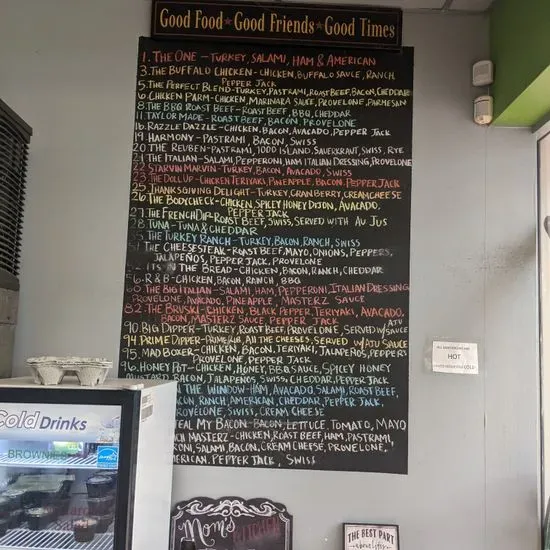 Good Food★Good Friends★Good Times
1. THE ONE - TURKEY, SALAMI, HAM & AMERICAN
3. THE BUFFALO CHICKEN - CHICKEN, BUFFALO SAUCE, RANCH
PEPPER JACK
5. THE PERFECT BLEND - TURKEY, PASTRAMI, ROAST BEEF, BACON, CHEDDAR
6. CHICKEN PARM - CHICKEN, MARINARA SAUCE, PROVELONE, PARMESAN
8. THE BBQ ROAST BEEF - ROAST BEEF, BBQ, CHEDDAR
11. TAYLOR MADE - ROAST BEEF, BACON, PROVELONE
16. RAZZLE DAZZLE - CHICKEN, BACON, AVOCADO, PEPPER JACK
19. HARMONY - PASTRAMI, BACON, SWISS
20. THE REUBEN - PASTRAMI, 1000 ISLAND, SAUERKRAUT, SWISS, RYE
21. THE ITALIAN - SALAMI, PEPPERONI, HAM ITALIAN DRESSING, PROVELONE
22. STARVIN MARVIN - TURKEY, BACON, AVACADO, SWISS
23. THE DOLL UP - CHICKEN TERIYAKI, PINEAPPLE, BACON, PEPPER JACK
25. THANKSGIVING DELIGHT - TURKEY, CRANBERRY, CREAM CHEESE
26. THE BODYCHECK - CHICKEN, SPICY HONEY DIJON, AVOCADO,
PEPPER JACK
27. THE FRENCH DIP - ROAST BEEF, SWISS, SERVED WITH AU JUS
28. TUNA - TUNA & CHEDDAR
THE TURKEY RANCH - TURKEY, BACON, RANCH, SWISS
THE CHEESESTEAK - ROAST BEEF, MAYO, ONIONS, PEPPERS,
JALAPEÑOS, PEPPER JACK, PROVELONE
ITS IN THE BREAD - CHICKEN, BACON, RANCH, CHEDDAR
R & B - CHICKEN, BACON, RANCH, BBQ
THE BIG ITALIAN - SALAMI, HAM, PEPPERONI, ITALIAN DRESSING
PROVELONE, AVOCADO, PINEAPPLE, MASTERZ SAUCE
82. THE BRUSKI - CHICKEN, BLACK PEPPER, TERIYAKI, AVOCADO,
BACON, MASTERZ SAUCE, PEPPER JACK
90. BIG DIPPER - TURKEY, ROAST BEEF, PROVELONE, SERVED W/ AJU SAUCE
94. PRIME DIPPER - PRIME RIB, ALL THE CHEESES, SERVED W/ AJU SAUCE
95. MAD BOXER - CHICKEN, BACON, TERIYAKI, JALAPEÑOS, PEPPERS
PROVELONE, PEPPER JACK
96. HONEY POT - CHICKEN, HONEY, BBQ SAUCE, SPICY HONEY
MUSTARD, BACON, JALAPEÑOS, SWISS, CHEDDAR, PEPPER JACK
IN THE WINDOW - HAM, AVACADO, SALAMI, ROAST BEEF,
RANCH, AMERICAN, CHEDDAR, PEPPER JACK,
PROVELONE, SWISS, CREAM CHEESE
STEAL MY BACON - BACON, LETTUCE, TOMATO, MAYO
MASTERZ - CHICKEN, ROAST BEEF, HAM, PASTRAMI,
SALAMI, BACON, CREAM CHEESE, PROVELONE,
AMERICAN, PEPPER JACK, SWISS
HOT
Cold DRINKS
BROWNIES
Salad
Mom's
KITCHEN
THE BEST PART